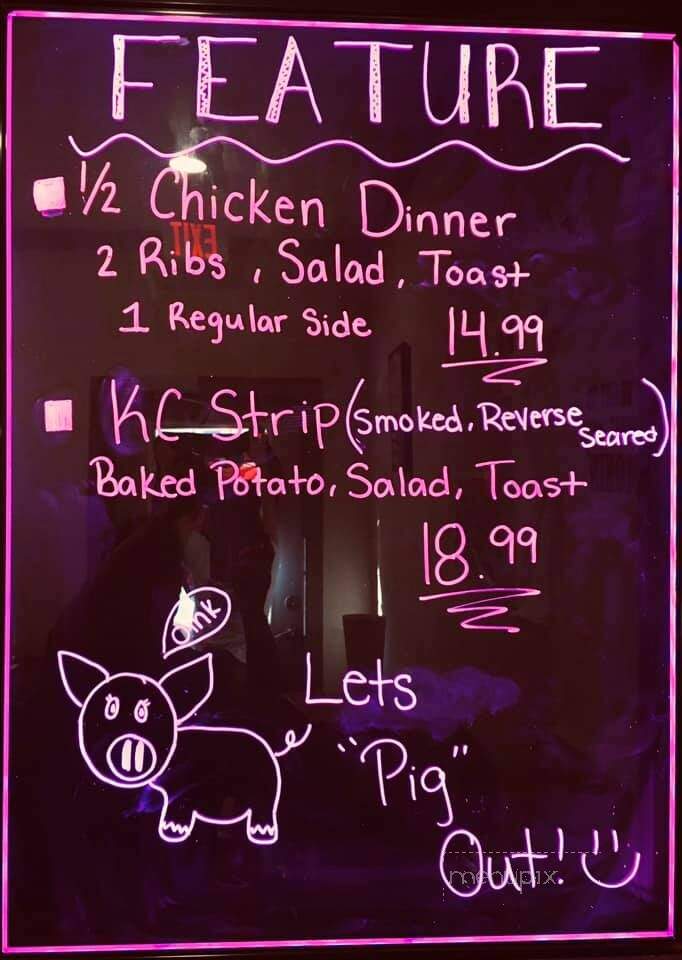 FEATURE
1/2 Chicken Dinner
EXIT
2 Ribs, Salad, Toast
1 Regular Side 14.99
KC Strip (Smoked, Reverse Seared)
Baked Potato, Salad, Toast
18.99
Oink
Lets
"Pig"
Out!
menupix